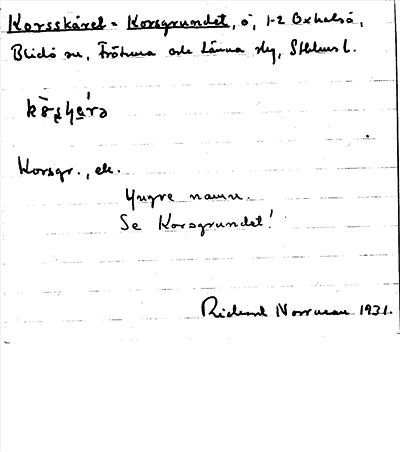 Korsskäret = Korsgrundet, ö, 1-2 Oxhalsö,
Blidö sn, Frötuna och Länna slg, Sthlms l.
Korsgr., ek.
Yngre namn.
Se Korsgrundet!
Rickard Norrman 1931.